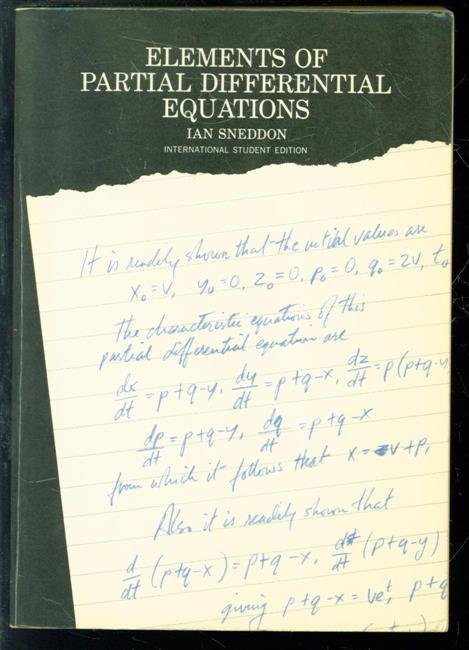 ELEMENTS OF
PARTIAL DIFFERENTIAL
EQUATIONS
IAN SNEDDON
INTERNATIONAL STUDENT EDITION
It is readily shown that the initial values are
x₀=v, y₀=0, z₀=0, p₀=0, q₀=2v, t₀
The characteristic equations of this
partial differential equation are
dx/dt = p+q-y, dy/dt = p+q-x, dz/dt = p(p+q-y
dp/dt = p+q-y, dq/dt = p+q-x
from which it follows that x = v+p,
Also it is readily shown that
d/dt (p+q-x) = p+q-x, d/dt (p+q-y)
giving p+q-x = ve^t, p+q